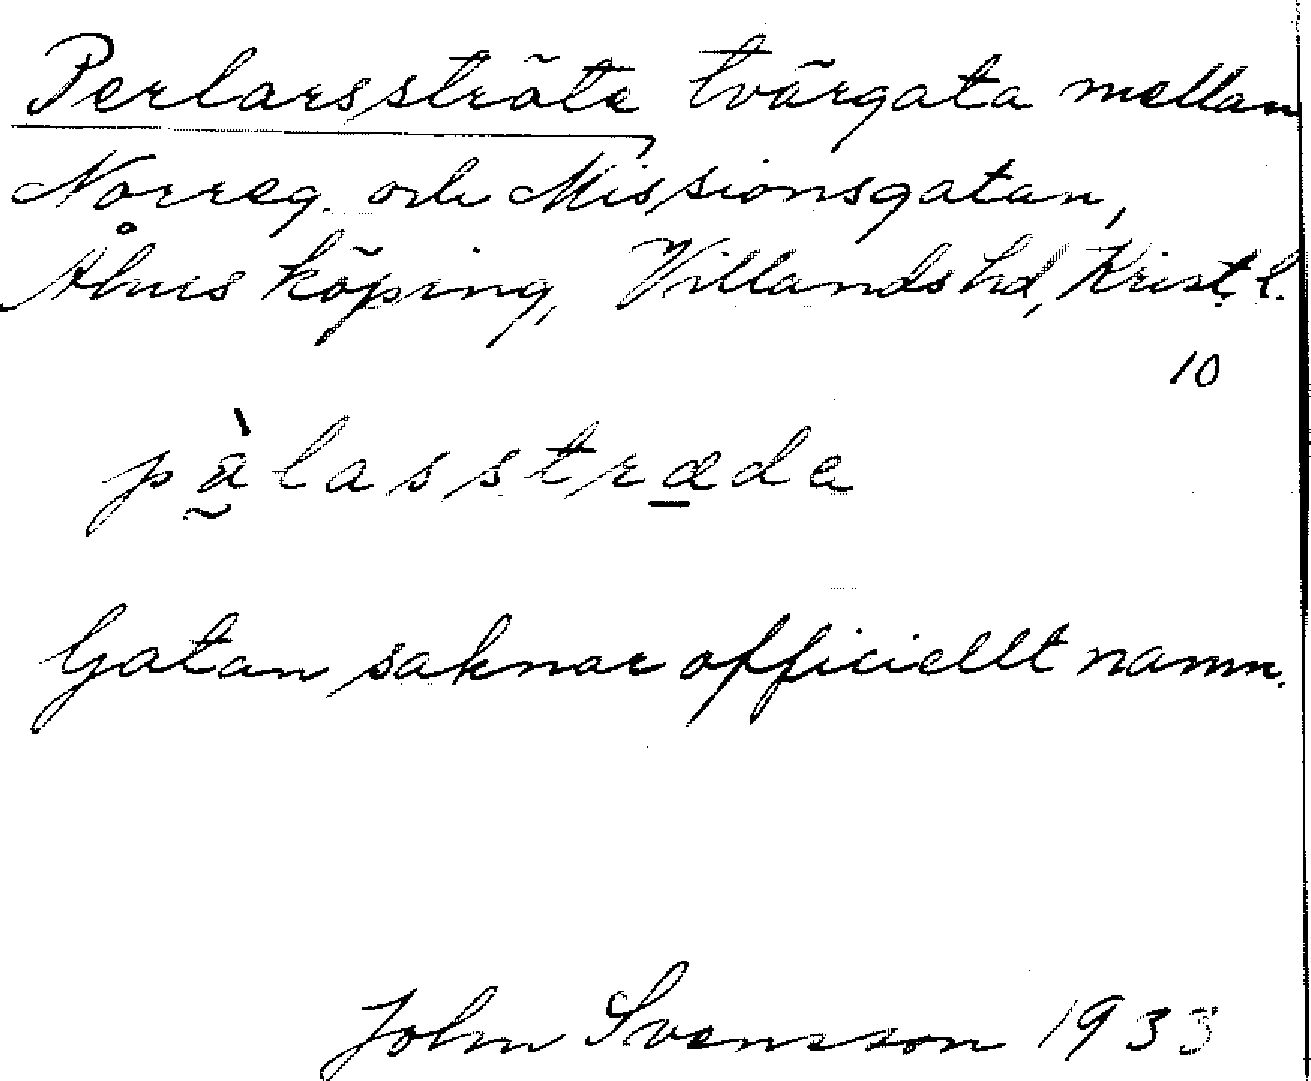 Perlarssträte tvärgata mellan
Norreg. och Missionsgatan,
Åhus köping, Villands hd, Krist. l.
10
pàlasstræde
Gatan saknar officiellt namn.
John Svensson 1933